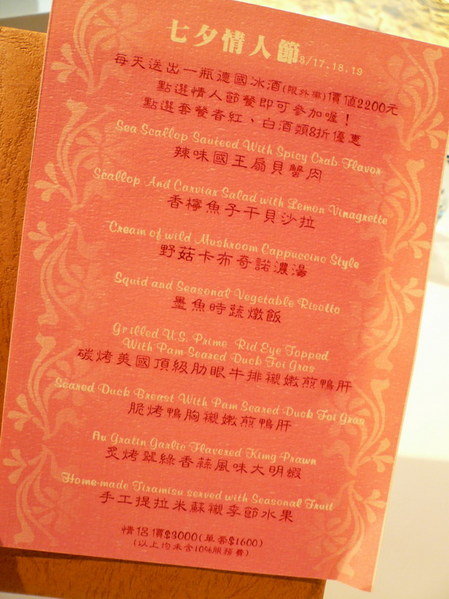 七夕情人節8/17.18.19
每天送出一瓶德國冰酒(限外帶)價值2200元
點選情人節餐即可參加喔！
點選套餐香紅、白酒類8折優惠
Sea Scallop Sauteed With Spicy Crab Flavor
辣味國王扇貝蟹肉
Scallop And Carviar Salad with Lemon Vinagrette
香檸魚子干貝沙拉
Cream of wild Mushroom Cappuccino Style
野菇卡布奇諾濃湯
Squid and Seasonal Vegetable Risotto
墨魚時蔬燉飯
Grilled U.S. Prime Rid Eye Topped
With Pam Seared Duck Foi Gras
碳烤美國頂級肋眼牛排襯嫩煎鴨肝
Seared Duck Breast With Pam Seared Duck Foi Gras
脆烤鴨胸襯嫩煎鴨肝
Au Gratin Garlic Flavored King Prawn
炙烤翠綠香蒜風味大明蝦
Home-made Tiramisu served with Seasonal Fruit
手工提拉米蘇襯季節水果
情侶價$3000(單客$1600)
(以上均未含10%服務費)